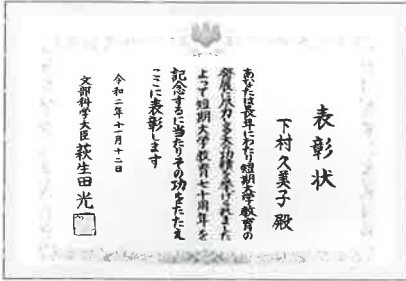 表彰状
下村久美子 殿
あなたは長年にわたり短期大学教育の
発展に尽力し多大な功績を挙げられました
よって短期大学教育七十周年を
記念するに当たりその功をたたえ
ここに表彰します
令和二年十一月十二日
文部科学大臣 萩生田光一